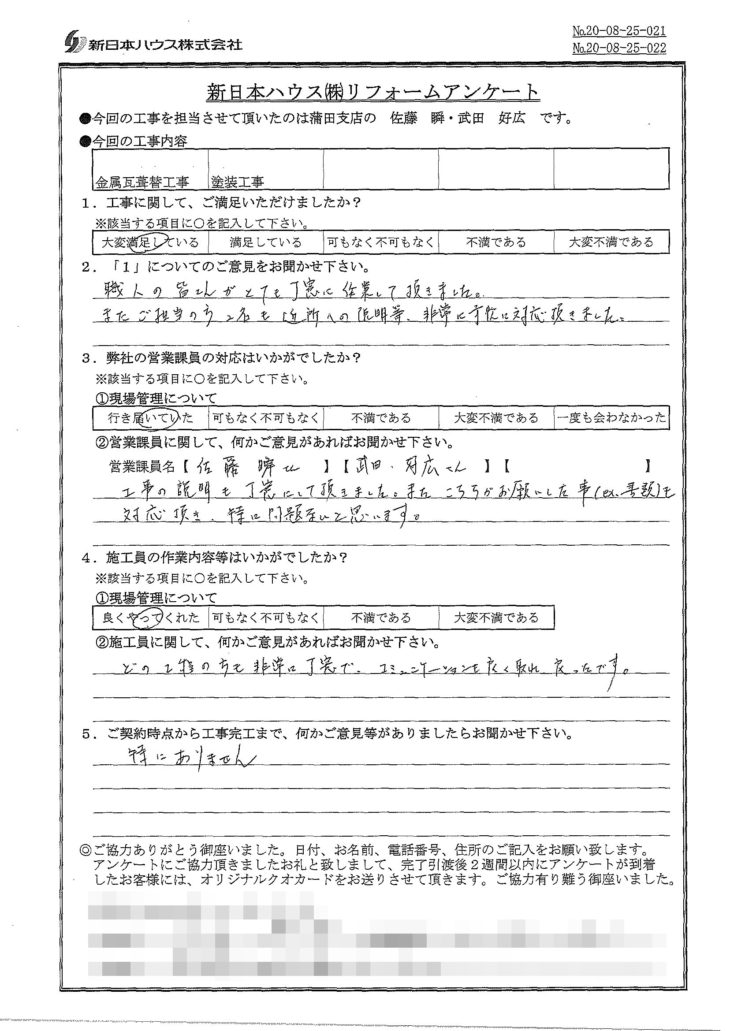 新日本ハウス株式会社
№20-08-25-021
№20-08-25-022
新日本ハウス㈱リフォームアンケート
●今回の工事を担当させて頂いたのは蒲田支店の 佐藤 瞬・武田 好広 です。
●今回の工事内容
金属瓦葺替工事 塗装工事
1．工事に関して、ご満足いただけましたか？
※該当する項目に○を記入して下さい。
大変満足している 満足している 可もなく不可もなく 不満である 大変不満である
2．「1」についてのご意見をお聞かせ下さい。
職人の皆さんがとても丁寧に作業して頂きました。
またご担当の方2名も近所への説明等、非常に丁寧に対応頂きました。
3．弊社の営業課員の対応はいかがでしたか？
※該当する項目に○を記入して下さい。
①現場管理について
行き届いていた 可もなく不可もなく 不満である 大変不満である 一度も会わなかった
②営業課員に関して、何かご意見があればお聞かせ下さい。
営業課員名【 佐藤 瞬さん 】【 武田・好広さん 】【 】
工事の説明も丁寧にして頂きました。また こちらがお願いした事(ex.書類)も
対応頂き、特に問題ないと思います。
4．施工員の作業内容等はいかがでしたか？
※該当する項目に○を記入して下さい。
①現場管理について
良くやってくれた 可もなく不可もなく 不満である 大変不満である
②施工員に関して、何かご意見があればお聞かせ下さい。
どの工程の方も非常に丁寧で、コミュニケーションも良く取れ良かったです。
5．ご契約時点から工事完工まで、何かご意見等がありましたらお聞かせ下さい。
特にありません
◎ご協力ありがとう御座いました。日付、お名前、電話番号、住所のご記入をお願い致します。
アンケートにご協力頂きましたお礼と致しまして、完了引渡後2週間以内にアンケートが到着
したお客様には、オリジナルクオカードをお送りさせて頂きます。ご協力有り難う御座いました。